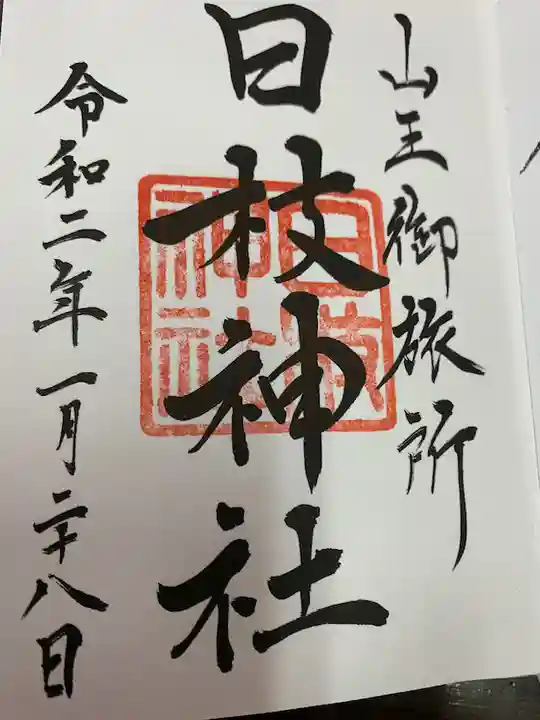 山王御旅所
日枝神社
日枝神社
令和二年一月二十八日